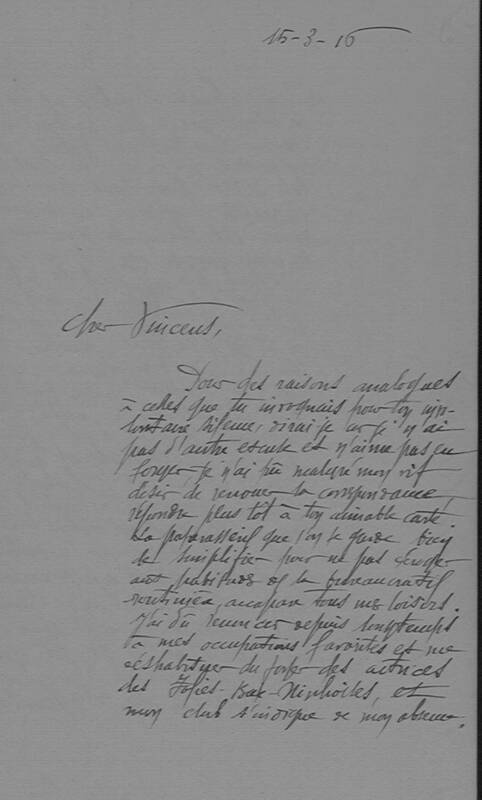 15-3-16
Cher Vincens,
Pour des raisons analogues
à celles que tu invoquais pour ton invo-
lontaire silence, dirai-je car je n'ai
pas d'autre excuse et n'aime pas en
forger, je n'ai pu malgré mon vif
désir de renouer la correspondance,
répondre plus tôt à ton aimable carte.
La paperasserie que l'on se garde bien
de simplifier pour ne pas déroger
aux habitudes de la bureaucratie
routinière, accapare tous mes loisirs.
J'ai dû renoncer depuis longtemps
à mes occupations favorites et me
déshabituer du des actrices
des et
mon club s'indigne de mon absence.